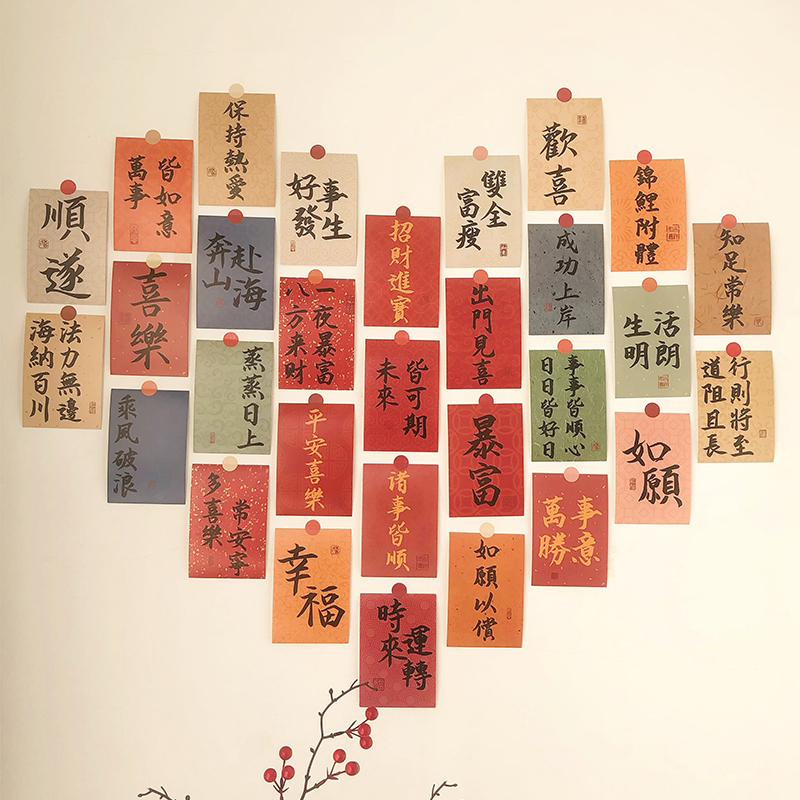 順遂
法力無邊
海納百川
萬事
皆如意
喜樂
乘風破浪
保持熱愛
奔山
赴海
蒸蒸日上
多喜樂
常安寧
好事
發生
一夜暴富
八方来財
平安喜樂
幸福
招財進寶
未來
皆可期
诸事皆顺
時來
運轉
富瘦
雙全
出門見喜
暴富
如願以償
歡喜
成功上岸
事事皆順心
日日皆好日
萬事
勝意
錦鯉附體
生活
明朗
如願
知足常樂
道阻且長
行則將至